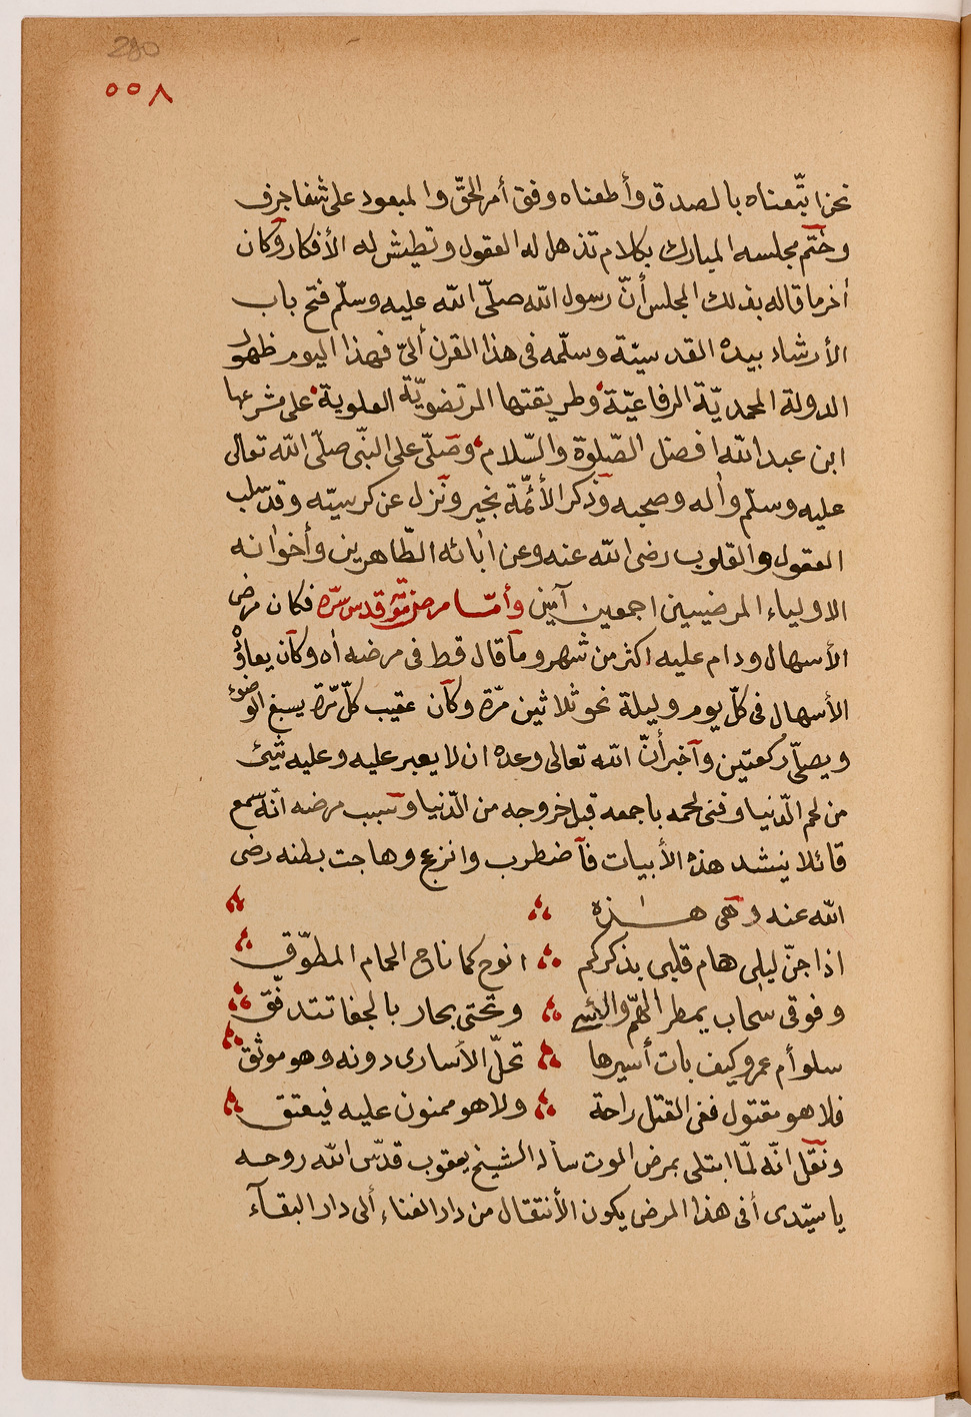 280
٥٥٨
نحن اتّبعناه بالصدق وأطعناه وفق أمر الحقّ والمبعود على شفا جرف
وختم مجلسه المبارك بكلام تذهل له العقول وتطيش له الأفكار وكان
اٰخر ما قاله بذلك المجلس أنّ رسول الله صلّى الله عليه وسلّم فتح باب
الأرشاد بيده القدسيّة وسلّمه فى هذا القرن ألىّ فهذا اليوم ظهور
الدولة المحمديّة الرفاعيّة وطريقتها المرتضويّة العلوية على مشرعها
ابن عبد الله افضل الصّلوة والسّلام وصلّى على النبّى صلّى الله تعالى
عليه وسلّم واٰله وصحبه وذكر الأئمّة بخير ونزل عن كرسيّه وقد سلب
العقول والقلوب رضى الله عنه وعن اٰبائه الطّاهرين وأخوانه
الاولياء المرضيين اجمعين آمين وأمّا مرض قدس سرّه فكان مرض
الأسهال ودام عليه اكثر من شهر وما قال قط فى مرضه اٰه وكان
الأسهال فى كلّ يوم وليلة نحو ثلاثين مرّة وكان عقيب كلّ مرّة يسبغ الوضوء
ويصلّى ركعتين وأخبر أنّ الله تعالى وعده ان لا يعبر عليه وعليه شيئ
من لحم الدّنيا وفنى لحمه باجمعه قبل خروجه من الدّنيا وسبب مرضه انّه سمع
قائلا ينشد هذه الأبيات فأضطرب وانزعج وهاجت بطنه رضى
الله عنه وهى هٰذه
اذا جنّ ليلى هام قلبى بذكركم انوح كما ناح الحمام المطوّق
وفوقى سحاب يمطر الهمّ والاسى وتحتى بحار بالجفا تتدفّق
سلو أم عمرو كيف بات أسيرها تحلّ الأسارى دونه وهو موثق
فلا هو مقتول ففى القتل راحة ولا هو ممنون عليه فيعتق
ونقل انّه لمّا ابتلى بمرض الموت سأله الشيخ يعقوب قدّس الله روحه
يا سيّدى أفى هذا المرض يكون الأنتقال من دار الفناء ألى دار البقاء